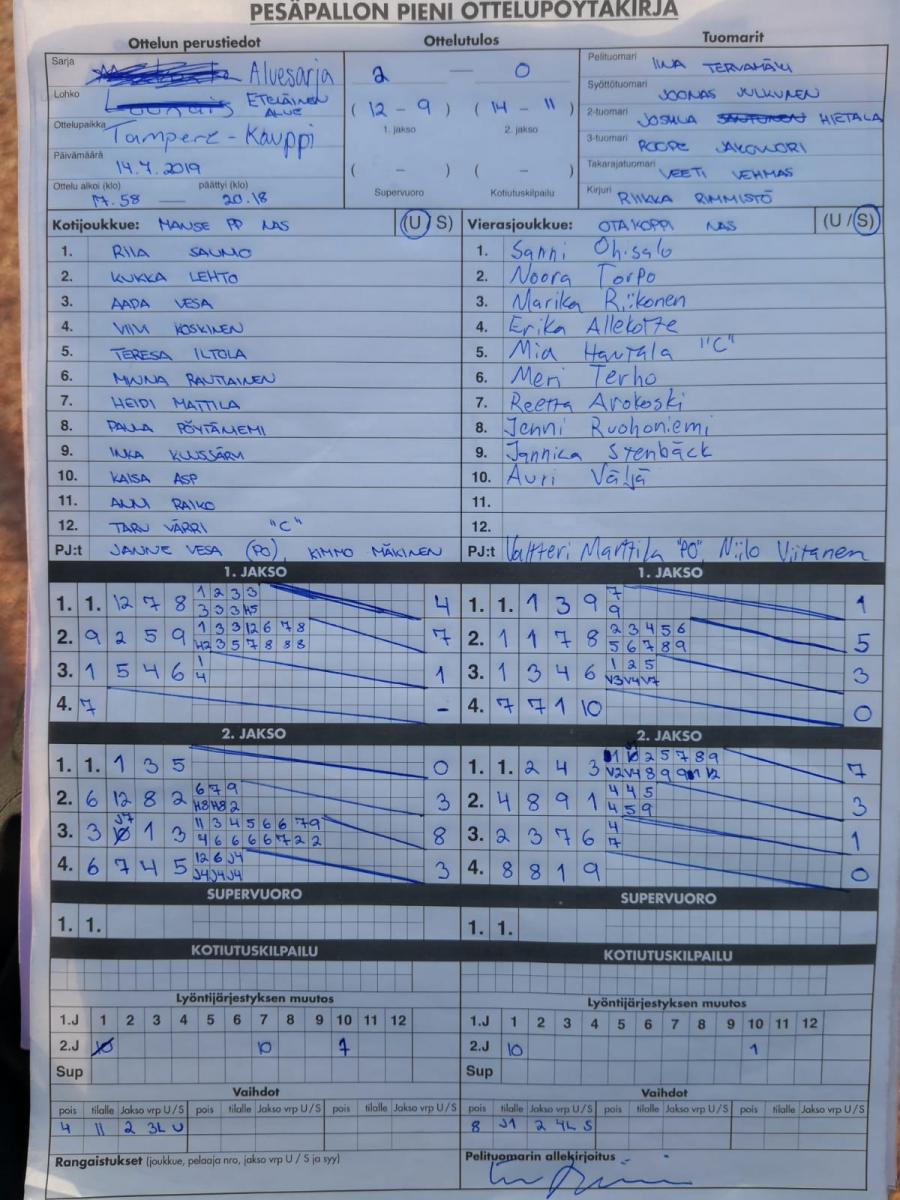 PESÄPALLON PIENI OTTELUPÖYTÄKIRJA
Ottelun perustiedot
Sarja Aluesarja
Lohko ETELÄINEN ALUE
Ottelupaikka Tampere - Kauppi
Päivämäärä 14.7.2019
Ottelu alkoi (klo) päättyi (klo)
17.58 — 20.18
Ottelutulos
2 — 0
( 12 - 9 ) ( 14 - 11 )
1. jakso 2. jakso
( - ) ( - )
Supervuoro Kotiutuskilpailu
Tuomarit
Pelituomari IINA TERVAMÄKI
Syöttötuomari JOONAS JULKUNEN
2-tuomari HIETALA
3-tuomari ROOPE
Takarajatuomari VEETI VEHMAS
Kirjuri RIIKKA RIMMISTÖ
Kotijoukkue: MANSE PP NAS (U/S)
1. RIIA SAUMO
2. KUKKA LEHTO
3. AADA VESA
4. VIIVI KOSKINEN
5. TERESA ILTOLA
6. MINNA RAUTIAINEN
7. HEIDI MATTILA
8. PAULA PÖYTÄNIEMI
9. INKA KUUSJÄRVI
10. KAISA ASP
11. ANNI RAIKO
12. TARU VÄRRI "C"
PJ:t JANNE VESA (PO), KIMMO MÄKINEN
Vierasjoukkue: OTAKOPPI NAS (U/S)
1. Sanni Ohisalo
2. Noora Torpo
3. Marika Riikonen
4. Erika Allekotte
5. Mia Hautala "C"
6. Meri Terho
7. Reetta Arokoski
8. Jenni Ruohoniemi
9. Jannica Stenbäck
10. Auri Väljä
11.
12.
PJ:t Valtteri Marttila "PO", Niilo Viitanen
1. JAKSO
1. 1. 12 7 8 1 2 3 3 4
3 3 3 H5
2. 9 2 5 9 1 3 3 12 6 7 8 7
H2 3 5 7 8 8 8
3. 1 5 4 6 1 1
4
4. 7 -
1. JAKSO
1. 1. 1 3 9 7 1
9
2. 1 1 7 8 2 3 4 5 6 5
5 6 7 8 9
3. 1 3 4 6 1 2 5 3
V3 V4 V7
4. 7 7 1 10 0
2. JAKSO
1. 1. 1 3 5 0
2. 6 12 8 2 6 7 9 3
H8 H8 2
3. 3 J7 1 3 11 3 4 5 6 6 7 9 8
4 6 6 6 6 7 2 2
4. 6 7 4 5 12 6 J4 3
J4 J4 J4
2. JAKSO
1. 1. 2 4 3 2 5 7 8 9 7
V2 V4 8 9 9 V2
2. 4 8 9 1 4 4 5 3
4 5 9
3. 2 3 7 6 4 1
7
4. 8 8 1 9 0
SUPERVUORO
1. 1.
SUPERVUORO
1. 1.
KOTIUTUSKILPAILU
KOTIUTUSKILPAILU
Lyöntijärjestyksen muutos
1.J 1 2 3 4 5 6 7 8 9 10 11 12
2.J 10 10 7
Sup
Lyöntijärjestyksen muutos
1.J 1 2 3 4 5 6 7 8 9 10 11 12
2.J 10 1
Sup
Vaihdot
pois tilalle Jakso vrp U/S pois tilalle Jakso vrp U/S pois tilalle Jakso vrp U/S
4 11 2 3L U
Vaihdot
pois tilalle Jakso vrp U/S pois tilalle Jakso vrp U/S pois tilalle Jakso vrp U/S
8 J1 2 4L S
Rangaistukset (joukkue, pelaaja nro, jakso vrp U / S ja syy)
Pelituomarin allekirjoitus